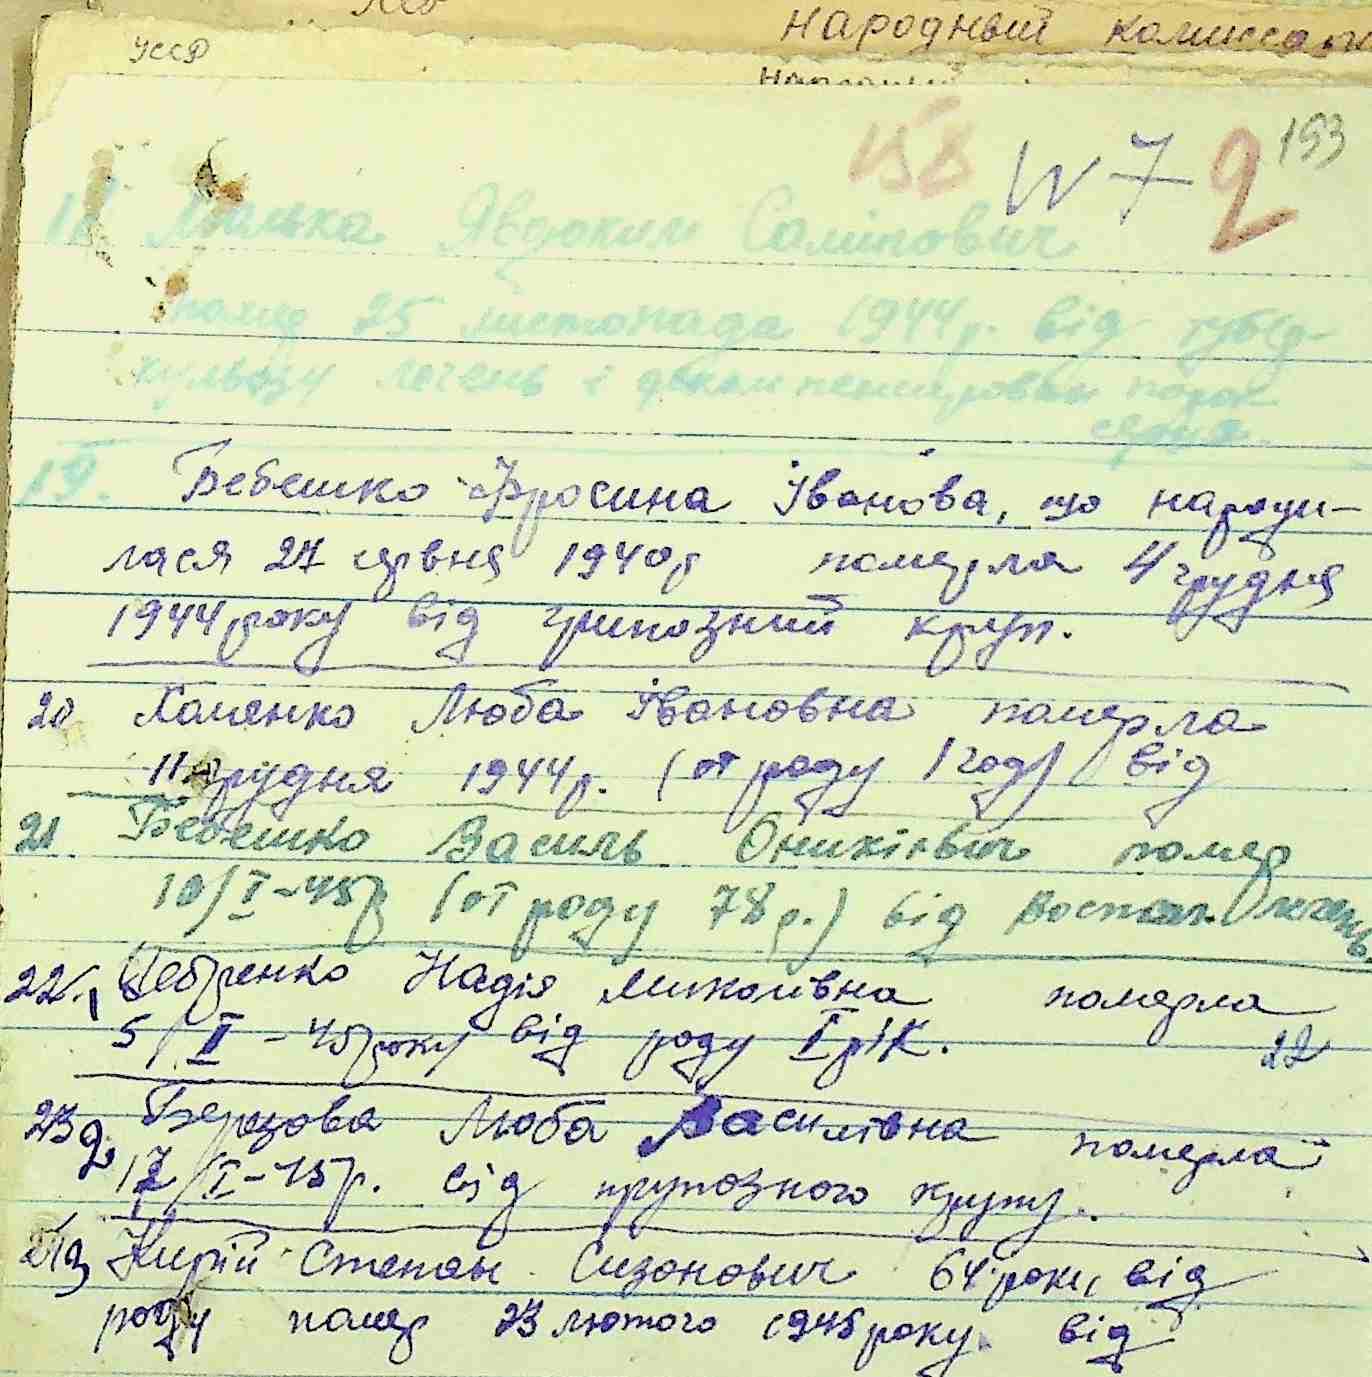 народный комисса
УССР
158 N 7 2 193
18. Явдоким Самінович
помер 25 листопада 1944 р. від тубер-
кульозу лечень і декомпенсирован порок
сердця.
19. Бебешко Фросина Іванова, що народи-
лася 27 червня 1940р померла 4 грудня
1944 року від грипозний круп.
20 Хоменко Люба Івановна померла
11 грудня 1944р. (от роду 1 год) від
21. Бебешко Василь Оникієвич помер
10/I-45р (от роду 78 р.) від воспал. лечень.
22. Надія Миколівна померла
5/II-45 року від роду I рік. 22
23. Березова Люба Василівна померла
17/I-45р. від грипозного крупу.
24. Кирій Степан Сизонович 64 роки, від
роду помер 23 лютого 1945 року від